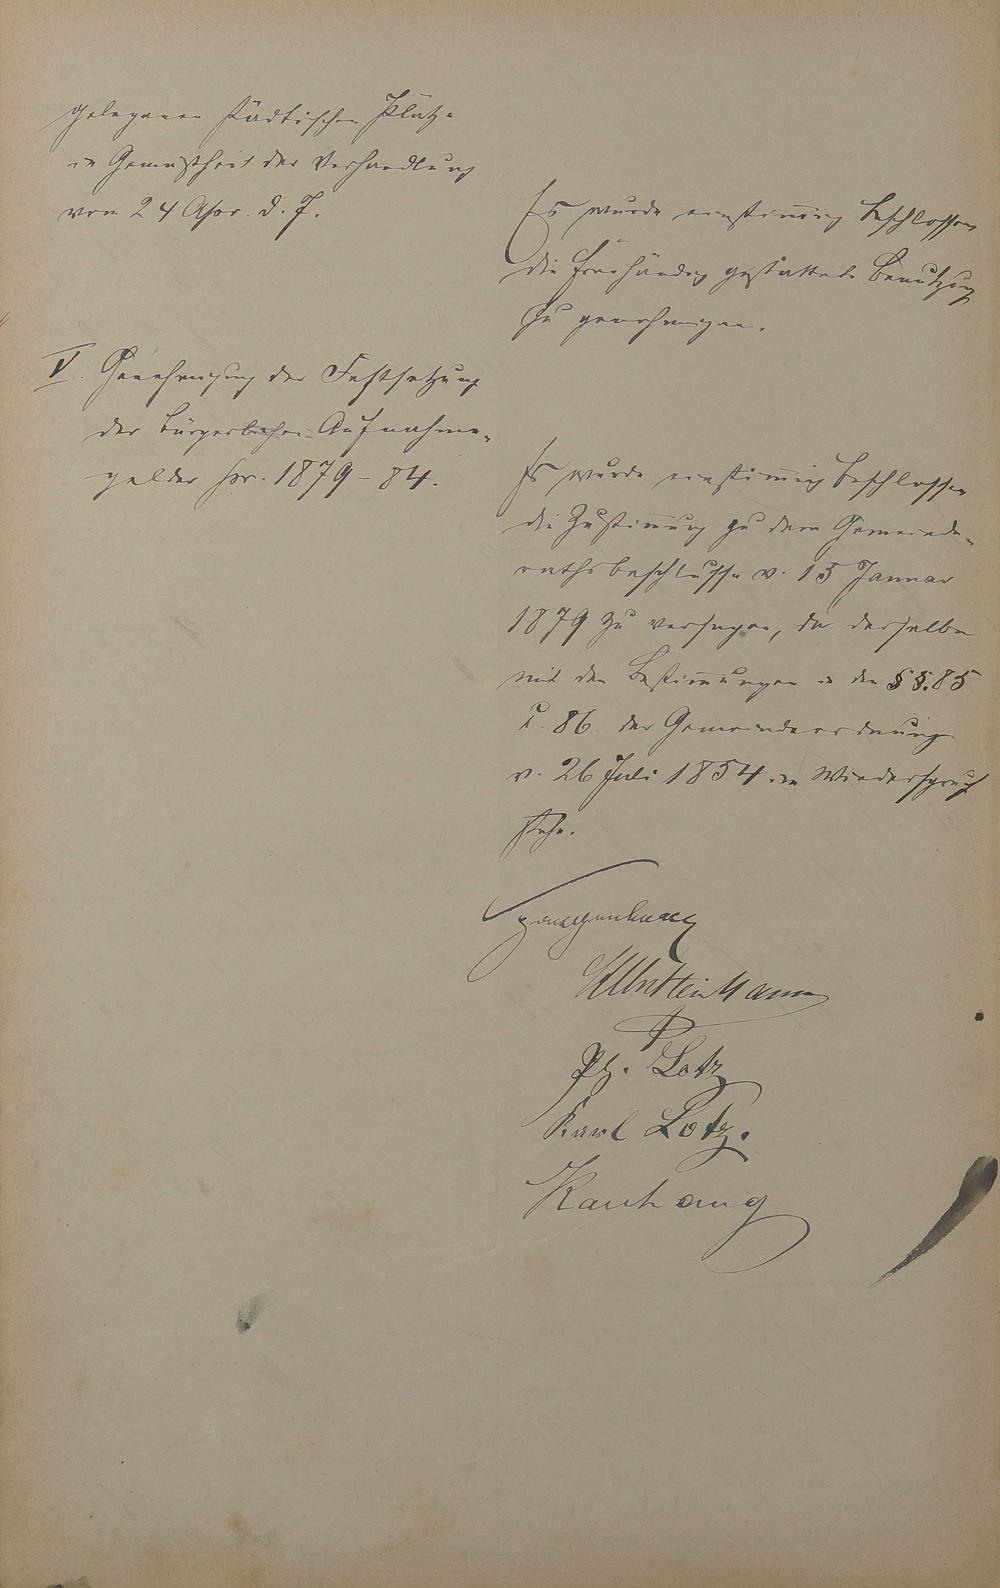 gelegenen städtischen Plätze
in Gemäßheit der Verhandlung
vom 24 Apr. d. J.
Es wurde einstimmig beschlossen
die freihändig gestattete Benutzung
zu genehmigen.
V. Genehmigung der Festsetzung
der bürgerlichen Aufnahme-
gelder pr. 1879-84.
Es wurde einstimmig beschlossen
die Zustimmung zu dem Gemeinde-
rathsbeschlusse v. 15 Januar
1879 zu versagen, da derselbe
mit den Bestimmungen in den §§. 85
u. 86. der Gemeindeordnung
v. 26 Juli 1854 in Wiederspruch
stehe.
Ph. Lotz
Karl Lotz.